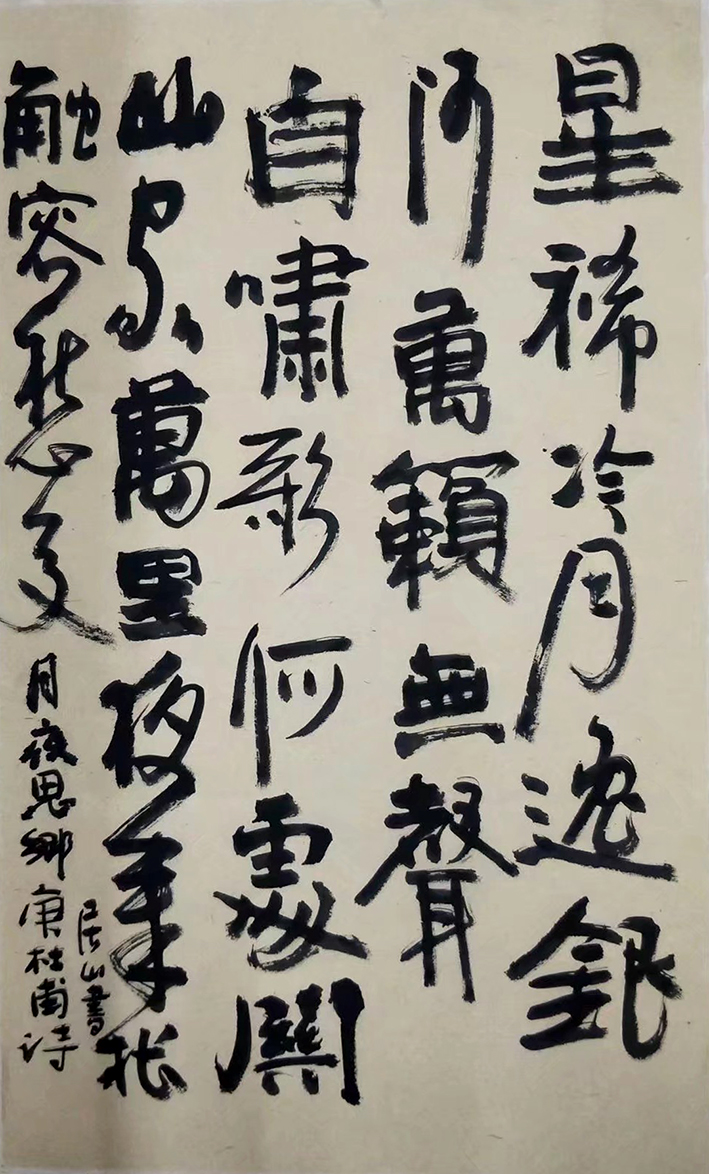 星稀冷月逸銀
河萬籟無聲
自嘯歌何處關
山家萬里夜來枨
触客愁多
月夜思鄉 唐杜甫诗
居山書